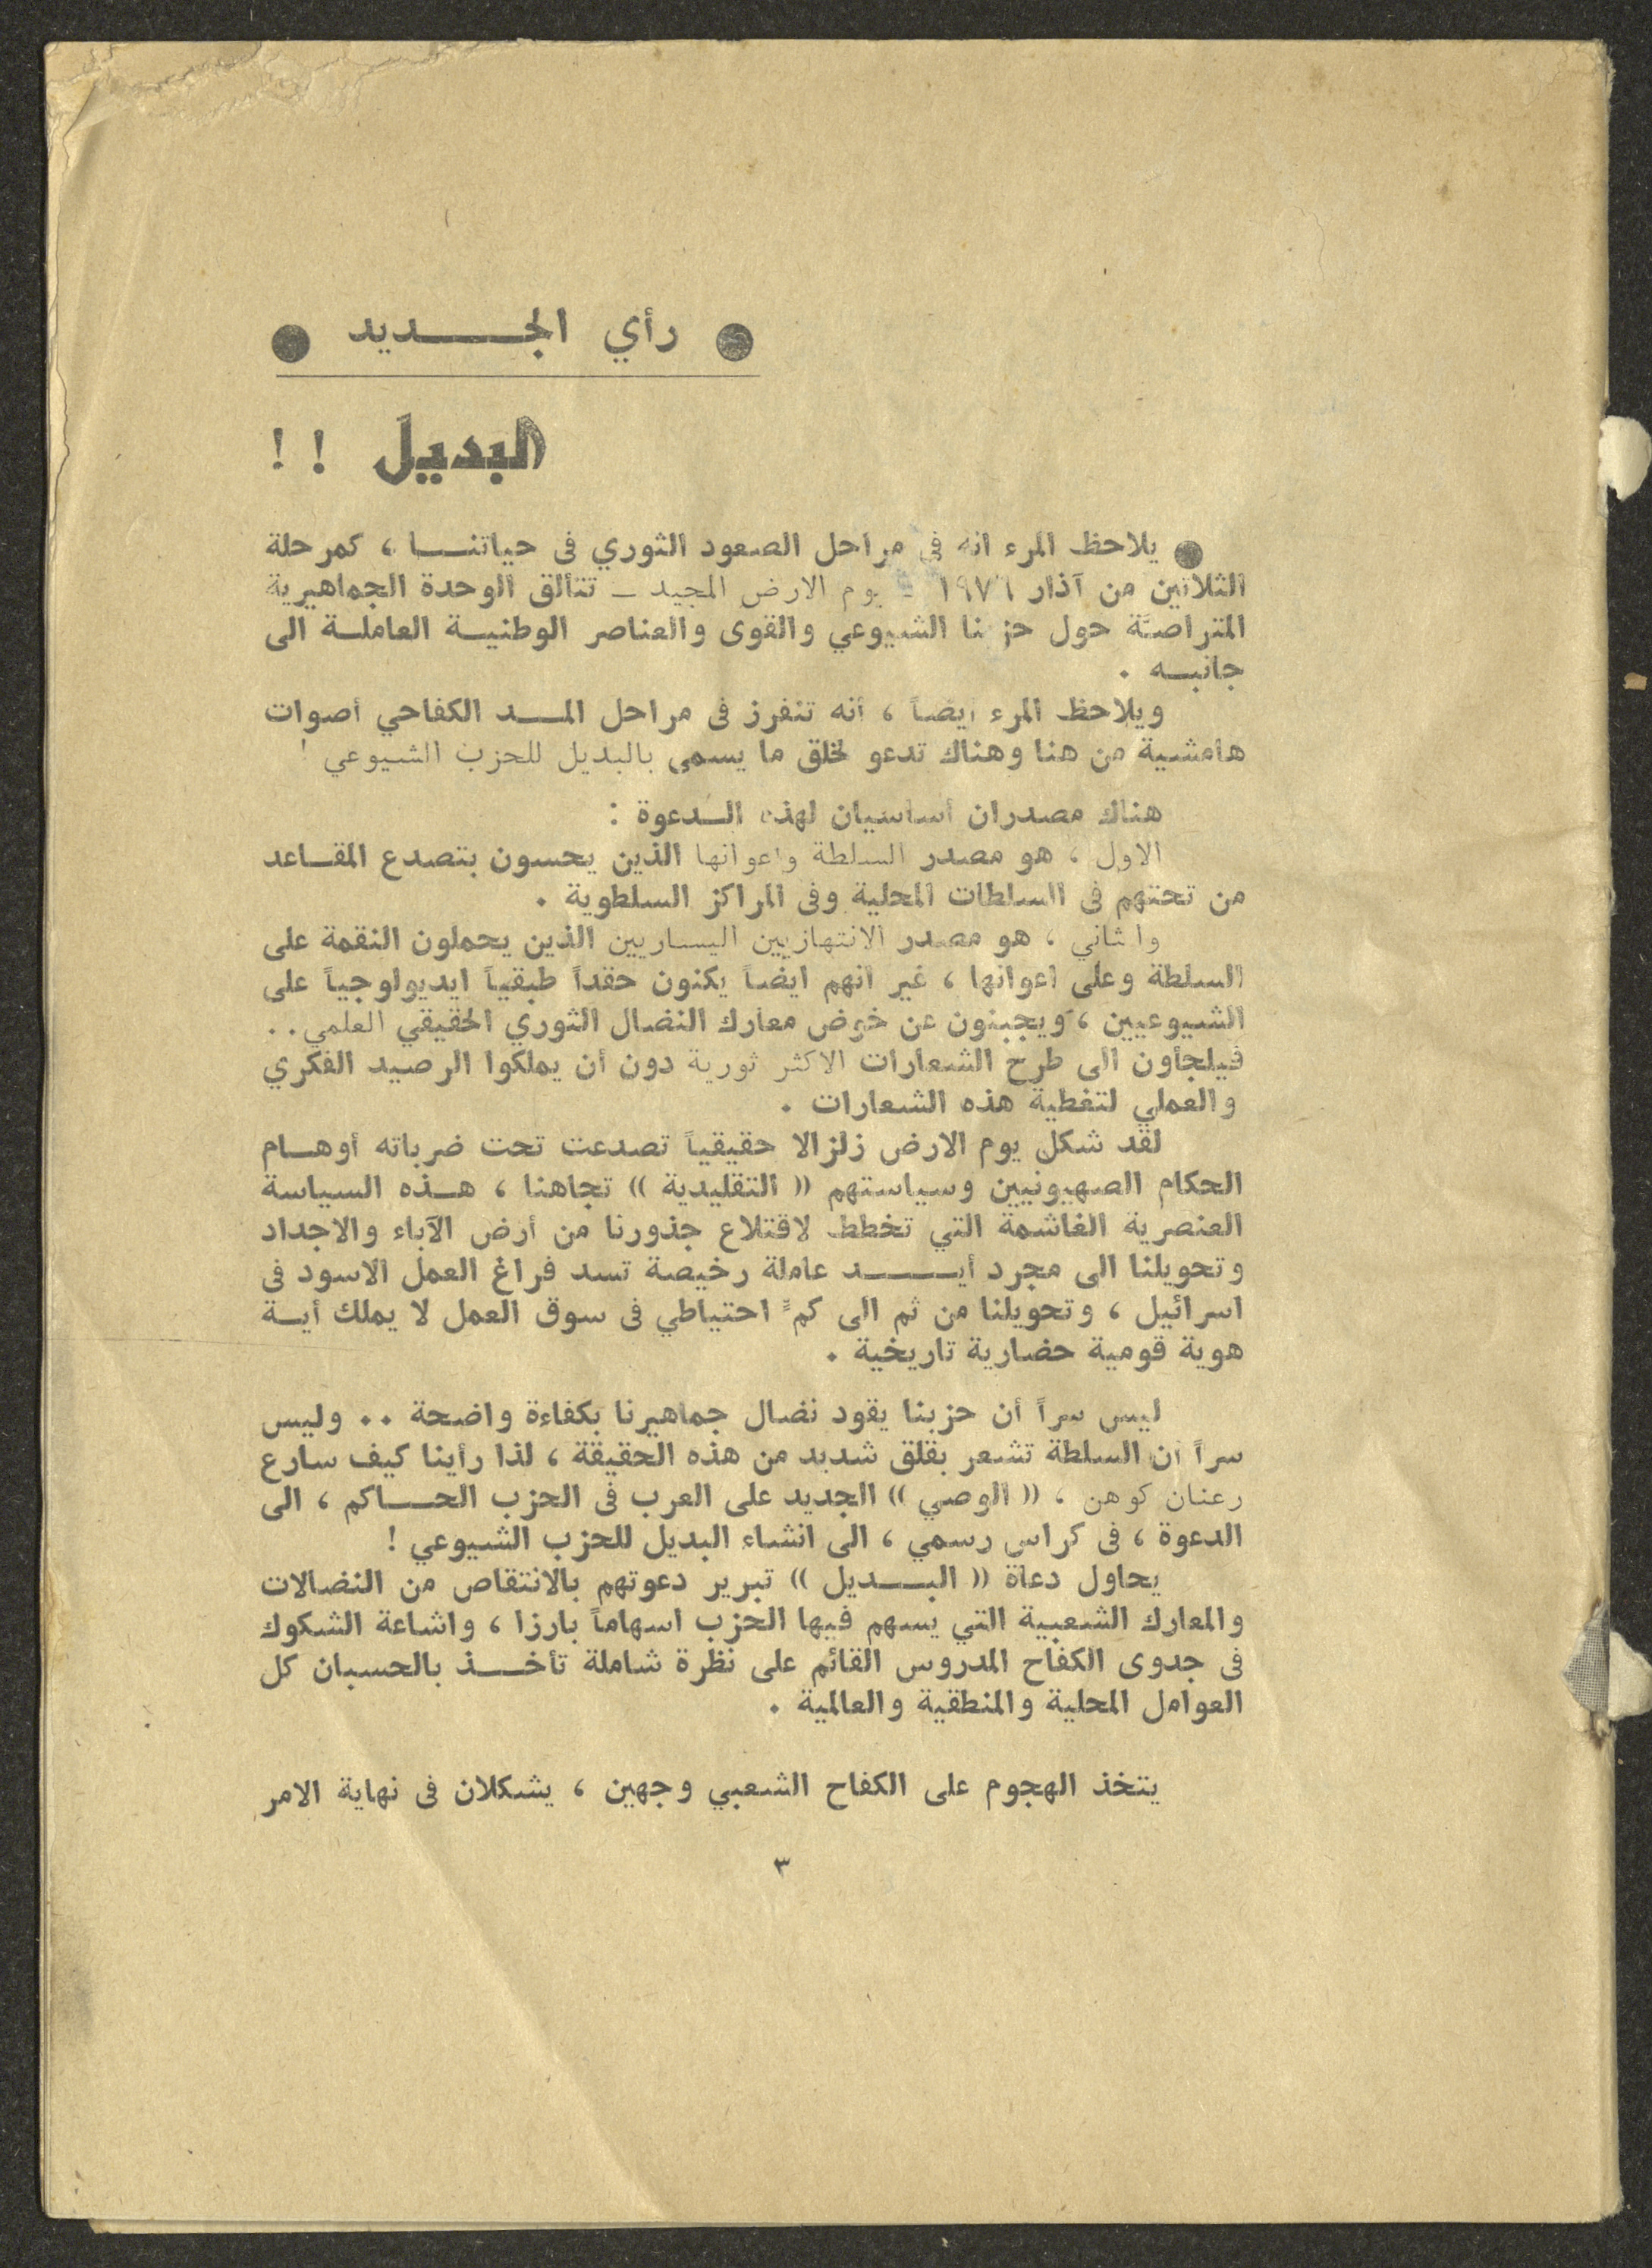 ● رأي الجـــــديد ●
البديل ! !
● يلاحظ المرء انه في مراحل الصعود الثوري في حياتنــــا ، كمرحلة
الثلاثين من آذار ١٩٧٦ ـ يوم الارض المجيد ـ تتألق الوحدة الجماهيرية
المتراصّة حول حزبنا الشيوعي والقوى والعناصر الوطنيــة العاملــة الى
جانبــه .
ويلاحظ المرء ايضاً ، أنه تنفرز في مراحل المــــد الكفاحي أصوات
هامشية من هنا وهناك تدعو لخلق ما يسمى بالبديل للحزب الشيوعي !
هناك مصدران أساسيان لهذه الــدعوة :
الاول ، هو مصدر السلطة واعوانها الذين يحسون بتصدع المقــاعد
من تحتهم في السلطات المحلية وفي المراكز السلطوية .
والثاني ، هو مصدر الانتهازيين اليساريين الذين يحملون النقمة على
السلطة وعلى اعوانها ، غير انهم ايضاً يكنون حقداً طبقياً ايديولوجياً على
الشيوعيين ، ويجبنون عن خوض معارك النضال الثوري الحقيقي العلمي . .
فيلجأون الى طرح الشعارات الاكثر ثورية دون أن يملكوا الرصيد الفكري
والعملي لتغطية هذه الشعارات .
لقد شكل يوم الارض زلزالا حقيقياً تصدعت تحت ضرباته أوهــام
الحكام الصهيونيين وسياستهم (( التقليدية )) تجاهنا ، هــذه السياسة
العنصرية الغاشمة التي تخطط لاقتلاع جذورنا من أرض الآباء والاجداد
وتحويلنا الى مجرد أيـــــد عاملة رخيصة تسد فراغ العمل الاسود في
اسرائيل ، وتحويلنا من ثم الى كمٍّ احتياطي في سوق العمل لا يملك أيــة
هوية قومية حضارية تاريخية .
ليس سراً أن حزبنا يقود نضال جماهيرنا بكفاءة واضحة . . وليس
سراً أن السلطة تشعر بقلق شديد من هذه الحقيقة ، لذا رأينا كيف سارع
رعنان كوهن ، (( الوصي )) الجديد على العرب في الحزب الحــــاكم ، الى
الدعوة ، في كراس رسمي ، الى انشاء البديل للحزب الشيوعي !
يحاول دعاة (( البــــديل )) تبرير دعوتهم بالانتقاص من النضالات
والمعارك الشعبية التي يسهم فيها الحزب اسهاماً بارزا ، واشاعة الشكوك
في جدوى الكفاح المدروس القائم على نظرة شاملة تأخــــذ بالحسبان كل
العوامل المحلية والمنطقية والعالمية .
يتخذ الهجوم على الكفاح الشعبي وجهين ، يشكلان في نهاية الامر
٣